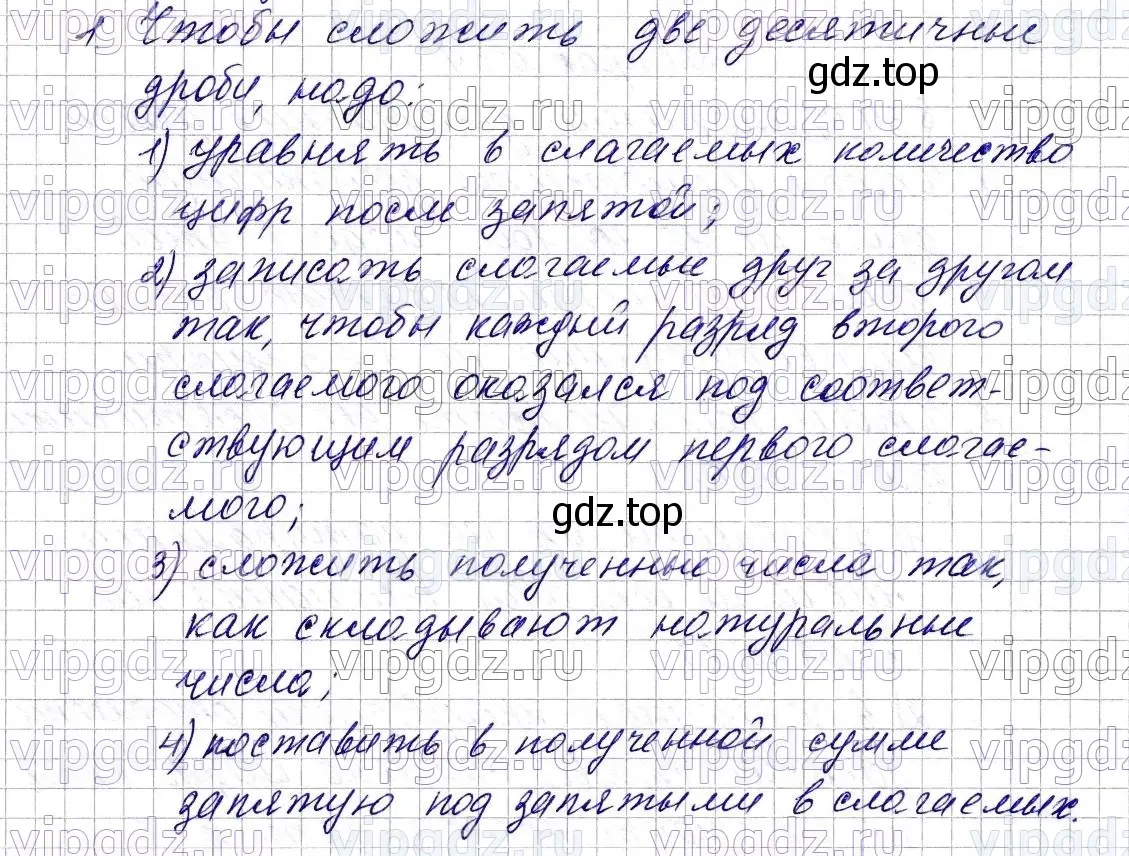 1 Чтобы сложить две десятичные
gdz.top
дроби, надо:
1) уравнять в слагаемых количество
цифр после запятой;
2) записать слагаемые друг за другом
так, чтобы каждый разряд второго
слагаемого оказался под соответ-
ствующим разрядом первого слагае-
мого;
gdz.top
3) сложить полученные числа так,
как складывают натуральные
числа;
4) поставить в полученной сумме
запятую под запятыми в слагаемых.
vipgdz.ru